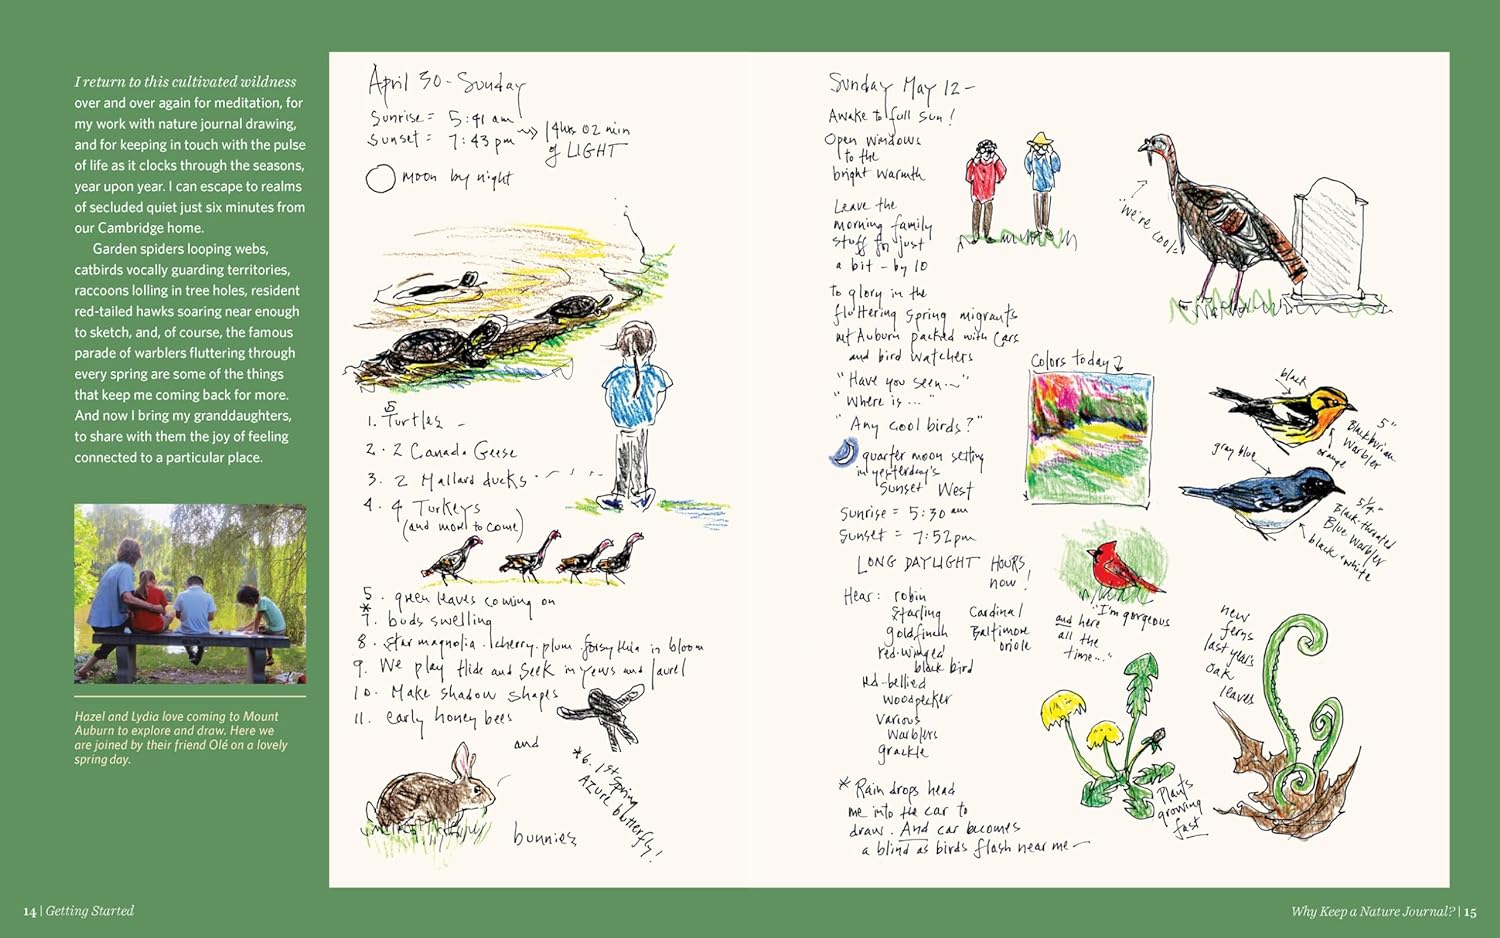 I return to this cultivated wildness
over and over again for meditation, for
my work with nature journal drawing,
and for keeping in touch with the pulse
of life as it clocks through the seasons,
year upon year. I can escape to realms
of secluded quiet just six minutes from
our Cambridge home.
Garden spiders looping webs,
catbirds vocally guarding territories,
raccoons lolling in tree holes, resident
red-tailed hawks soaring near enough
to sketch, and, of course, the famous
parade of warblers fluttering through
every spring are some of the things
that keep me coming back for more.
And now I bring my granddaughters,
to share with them the joy of feeling
connected to a particular place.
Hazel and Lydia love coming to Mount
Auburn to explore and draw. Here we
are joined by their friend Olé on a lovely
spring day.
14 | Getting Started
April 30 - Sunday
Sunrise = 5:41 am
Sunset = 7:43 pm
14 hrs 02 min
of LIGHT
moon by night
5
1. Turtles -
2. 2 Canada Geese
3. 2 Mallard ducks
4. 4 Turkeys
(and more to come)
5. green leaves coming on
*
7. buds swelling
8. star magnolia. cherry. plum. forsythia in bloom
9. We play Hide and Seek in yews and laurel
10. Make shadow shapes
11. early honey bees
and
bunnies
*6. 1st Spring
Azure butterfly!
Sunday May 12 -
Awake to full sun!
Open windows
to the
bright warmth
Leave the
morning family
stuff for just
a bit - by 10
to glory in the
fluttering spring migrants
Mt Auburn packed with cars
and bird watchers
"Have you seen..."
"Where is ..."
"Any cool birds?"
quarter moon setting
in yesterday's
Sunset West
Sunrise = 5:30 am
Sunset = 7:52 pm
LONG DAYLIGHT HOURS
now!
Hear: robin
starling
goldfinch
red-winged
black bird
red-bellied
woodpecker
various
warblers
grackle
Cardinal
Baltimore
oriole
* Rain drops head
me into the car to
draw. And car becomes
a blind as birds flash near me -
"We're cool"
Colors today
black
5"
Blackburnian
Warbler
orange
gray blue
5 1/4"
Black-throated
Blue Warbler
black + white
"I'm gorgeous
and here
all the
time..."
new
ferns
last years
oak
leaves
Plants
growing
fast
Why Keep a Nature Journal? | 15